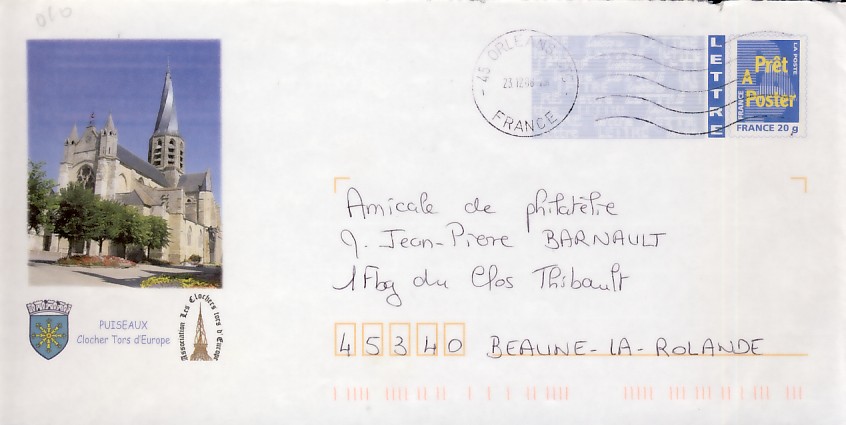 010
45 ORLEANS
23.12.08
FRANCE
LETTRE
LA POSTE
Prêt
A
Poster
FRANCE
FRANCE 20 g
Amicale de philatélie
J. Jean-Pierre BARNAULT
1 Fbg du Clos Thibault
45340 BEAUNE-LA-ROLANDE
PUISEAUX
Clocher Tors d'Europe
Association Les Clochers tors d'Europe